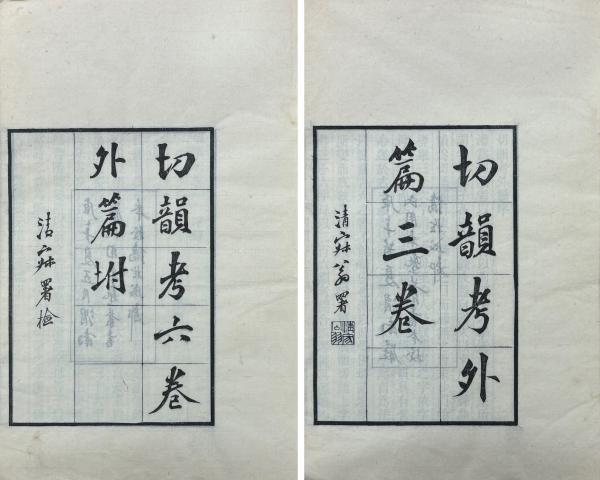 切韻考六卷
外篇坿
清寐署檢
切韻考外
篇三卷
清寐翁署